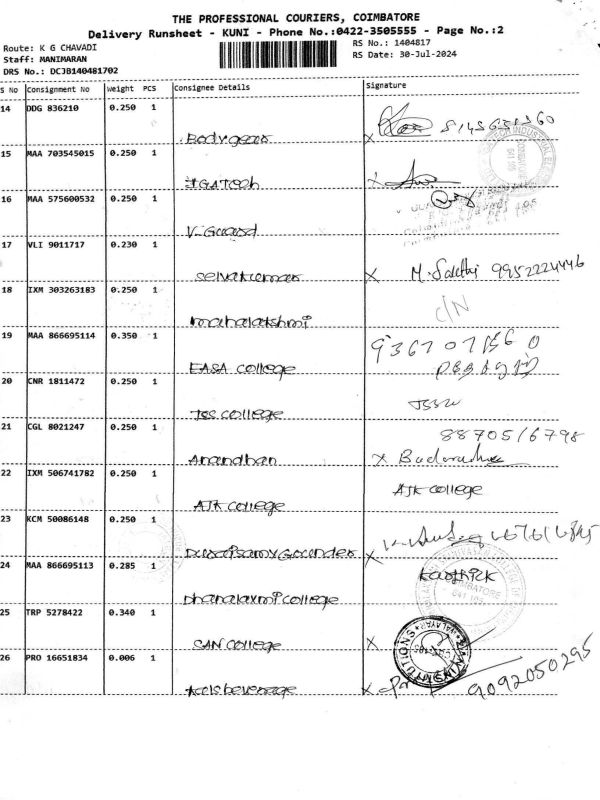 THE PROFESSIONAL COURIERS, COIMBATORE
Delivery Runsheet - KUNI - Phone No.:0422-3505555 - Page No.:2
Route: K G CHAVADI
Staff: MANIMARAN
DRS No.: DCJB140481702
RS No.: 1404817
RS Date: 30-Jul-2024
S No Consignment No Weight PCS Consignee Details Signature
14 DDG 836210 0.250 1
Bodygear
15 MAA 703545015 0.250 1
16 MAA 575600532 0.250 1
V-Guard
17 VLI 9011717 0.230 1
Selvakumar X M. Sakthi 9952224446
18 IXM 303263183 0.250 1
Mahalakshmi C/N
19 MAA 866695114 0.350 1
EASA College
20 CNR 1811472 0.250 1
JSS College
21 CGL 8021247 0.250 1 8870516798
Anandhan X
22 IXM 506741782 0.250 1
AJK College AJK College
23 KCM 50086148 0.250 1
Duraisamy Gounder X
24 MAA 866695113 0.285 1 Karthick
Dhanalaxmi College
25 TRP 5278422 0.340 1
SAN College X
26 PRO 16651834 0.006 1
X 9092050295